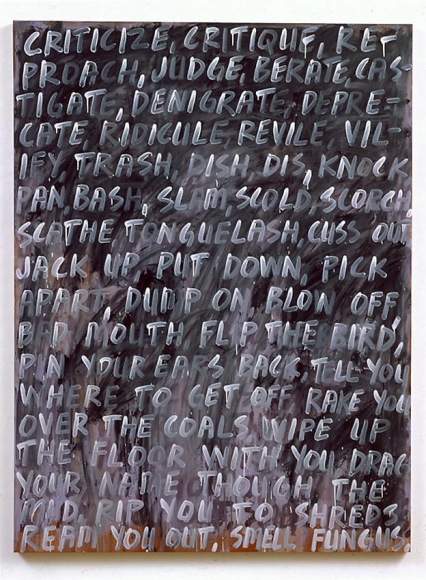 CRITICIZE, CRITIQUE, REP
PROACH, JUDGE, BERATE, CAS-
TIGATE, DENIGRATE, DEPRE-
CATE, RIDICULE, REVILE, VIL-
IFY, TRASH, DISH, DIS, KNOCK,
PAN, BASH, SLAM, SCOLD, SCORCH,
SCATHE TONGUELASH, CUSS OUT
JACK UP PUT DOWN, PICK
APART, DUMP ON BLOW OFF,
BAD MOUTH FLIP THE BIRD,
PIN YOUR EARS BACK TELL YOU
WHERE TO GET OFF RAKE YOU
OVER THE COALS, WIPE UP
THE FLOOR WITH YOU, DRAG
YOUR NAME THOUGH THE
MUD, RIP YOU TO SHREDS
REAM YOU OUT, SMELL FUNGUS.